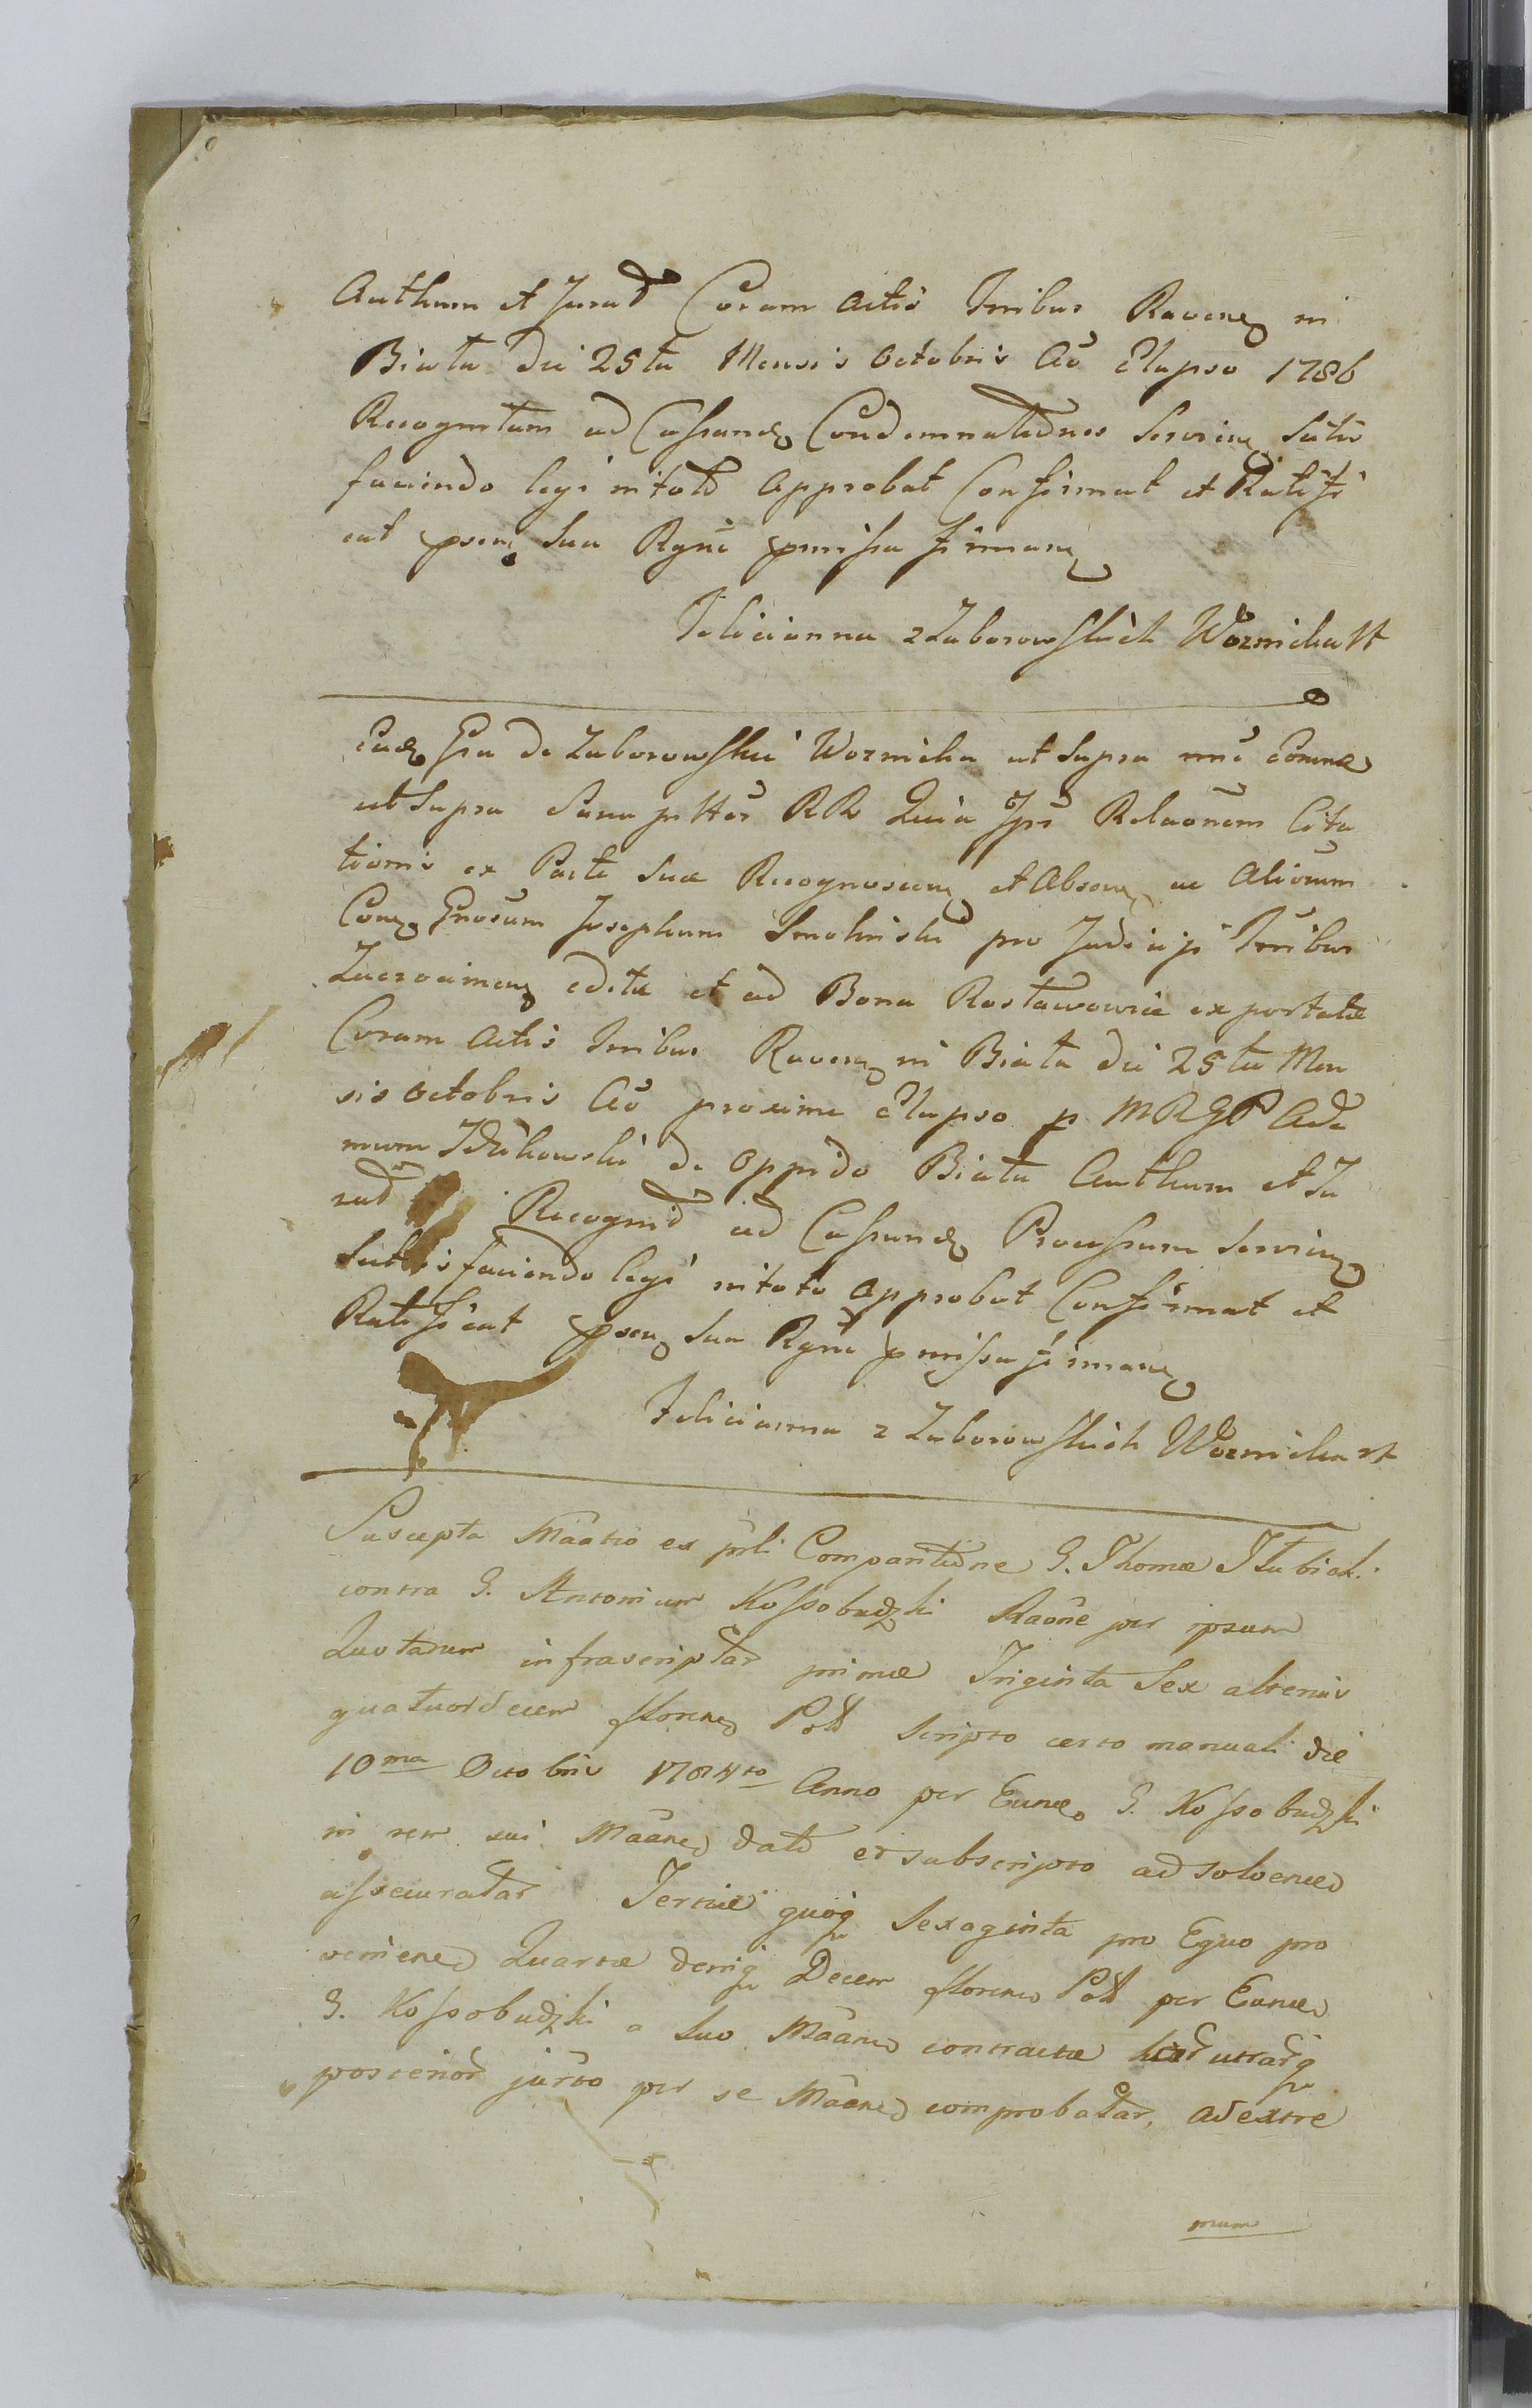 Authum et Jurat Coram Actis Trribus Ravens in
Biała die 25ta Mensis Octobris Aõ Elapso 1786
Recognitum ad Cassand Condemnationes Servien Satis
faciendo legi in toto Approbat Confirmat et Ratifi
cat psen sua Rgne pmissa firman
Felicianna z Zaborowskich Woznicka mp
Ead Gsa de Zaborowskie Woznicka ut supra
ut supra Sana RR Quia Ips Relaõnem Cita
tionis ex Parte sua Recognoscen et Absen ac Aliorum
Con Gnosum Josephum Smolinski pro Judicijs Trribus
Zacrocimen edita et ad Bona Rostawowice exportatæ
Coram Actis Trribus Ravens in Biała die 25ta Men
sis Octobris Aõ proxime Elapso p MRGP Ada
mum Zdzikowski de Oppido Biała Authum et Ju
rat Recognit ad Cassand Processum Servien
Satisfaciendo legi in toto Approbat Confirmat et
Ratificat psen sua Rgne pmissa firman
Felicianna z Zaborowskich Woznicka mp
Suscepta Maatio ex prli Comparitõne G. Thomæ
contra G. Antonium Kossobudzki Raõne per ipsum
Quotarum infrascriptar primæ Triginta Sex alterius
quatuordecem floren Poll scripto certo manuali die
10ma Octobris 1784to Anno per Eund G. Kossobudzki
in rem sui Maãnd dato et subscripto ad solvend
assecuratar Tertiæ quoq Sexaginta pro Equo pro
veniend Quartæ deniq Decem floren Poll per Eund
G. Kossobudzki a suo Maãnd contractæ utrarq
posterior jurto per se Maãnd comprobatar, ad extre
mum